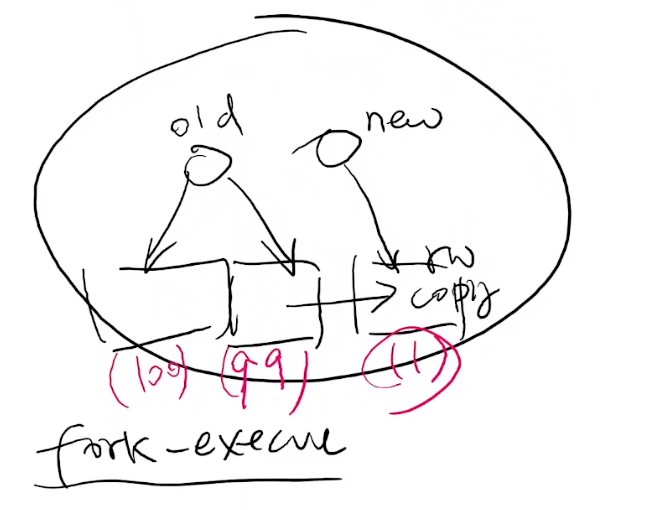 old new
rw
copy
(100) (99) (11)
fork-execve